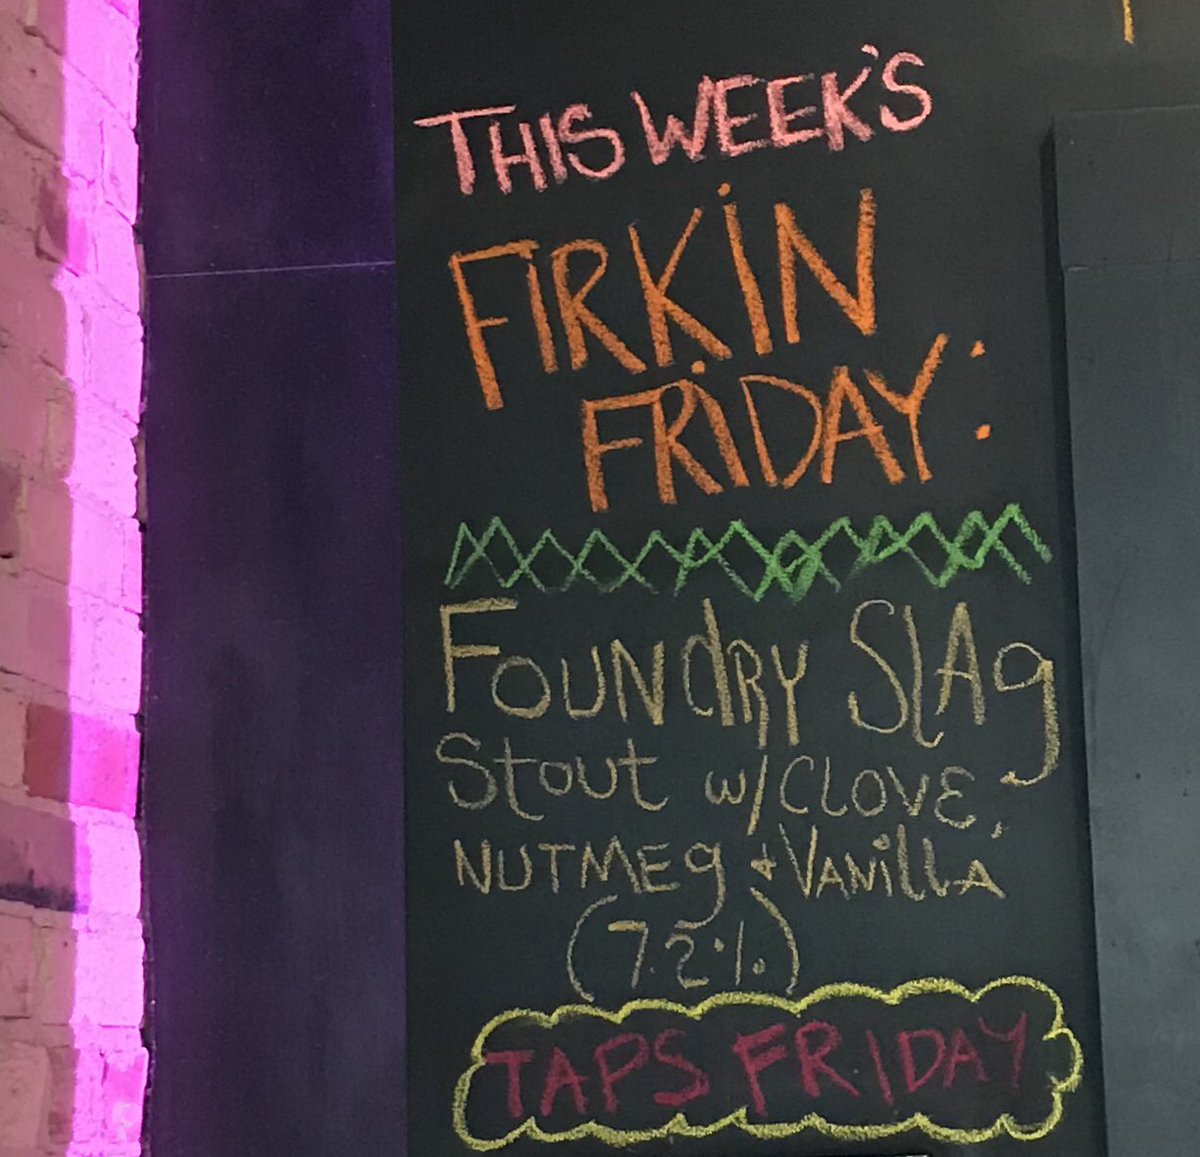 THIS WEEK'S
FIRKIN
FRIDAY:
FOUNdRY SlAg
Stout w/CLOVE,
NUTMEg + VANillA
(7.2%)
TAPS FRIDAY